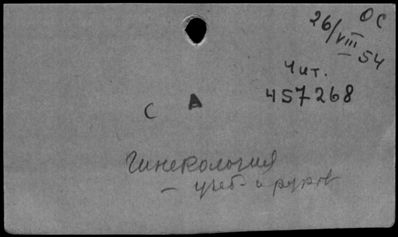 ОС
26/VIII 54
Чит.
457268
С А
Гинекология
– учеб. и руков